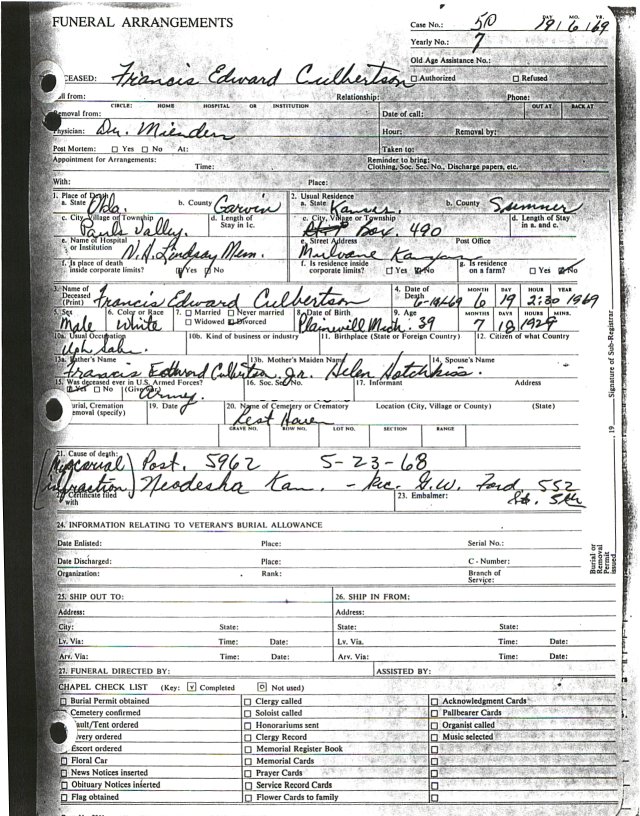 FUNERAL ARRANGEMENTS
Case No.: 50 DAY MO. YR. 19 / 6 / 69
Yearly No.: 7
Old Age Assistance No.:
CEASED: Francis Edward Culbertson ☐ Authorized ☐ Refused
ll from: Relationship: Phone:
CIRCLE: HOME HOSPITAL OR INSTITUTION OUT AT BACK AT
emoval from: Date of call:
hysician: Dr. Hour: Removal by:
Post Mortem: ☐ Yes ☐ No At: Taken to:
Appointment for Arrangements: Reminder to bring:
Time: Clothing, Soc. Sec. No., Discharge papers, etc.
With: Place:
1. Place of Death 2. Usual Residence
a. State Okla. b. County Garvin a. State Kansas b. County Sumner
c. City, Village or Township d. Length of Stay in 1c. c. City, Village or Township d. Length of Stay in a. and c.
Pauls Valley Box 490
e. Name of Hospital or Institution e. Street Address Post Office
Lindsay Mem. Mulvane Kansas
f. Is place of death inside corporate limits? ☑ Yes ☐ No f. Is residence inside corporate limits? ☐ Yes ☑ No g. Is residence on a farm? ☐ Yes ☑ No
3. Name of Deceased (Print) Francis Edward Culbertson 4. Date of Death 6-19-69 MONTH 6 DAY 19 HOUR 2:30 YEAR 1969
5. Sex 6. Color or Race 7. ☐ Married ☐ Never married 8. Date of Birth 9. Age MONTHS DAYS HOURS MINS.
Male White ☐ Widowed ☑ Divorced Plainwell Mich. 39 7 18 1929
10a. Usual Occupation 10b. Kind of business or industry 11. Birthplace (State or Foreign Country) 12. Citizen of what Country
13a. Father's Name 13b. Mother's Maiden Name 14. Spouse's Name
Francis Edward Culbertson, Jr. Helen Hotchkiss
15. Was deceased ever in U.S. Armed Forces? 16. Soc. Sec. No. 17. Informant Address
☑ Yes ☐ No (Give War) Army
urial, Cremation emoval (specify) 19. Date 20. Name of Cemetery or Crematory Location (City, Village or County) (State)
Rest Haven
GRAVE NO. ROW NO. LOT NO. SECTION RANGE
21. Cause of death:
(Myocarial Post. 5962 5-23-68
infraction) Neodesha Kan. - Rec. G.W. Ford 552
22. Certificate filed with 23. Embalmer: St. 5th
24. INFORMATION RELATING TO VETERAN'S BURIAL ALLOWANCE
Date Enlisted: Place: Serial No.:
Date Discharged: Place: C - Number:
Organization: Rank: Branch of Service:
25. SHIP OUT TO: 26. SHIP IN FROM:
Address: Address:
City: State: State: State:
Lv. Via: Time: Date: Lv. Via. Time: Date:
Arv. Via: Time: Date: Arv. Via: Time: Date:
27. FUNERAL DIRECTED BY: ASSISTED BY:
CHAPEL CHECK LIST (Key: ☑ Completed ☐ Not used)
☐ Burial Permit obtained ☐ Clergy called ☐ Acknowledgment Cards
☐ Cemetery confirmed ☐ Soloist called ☐ Pallbearer Cards
ault/Tent ordered ☐ Honorariums sent ☐ Organist called
ivery ordered ☐ Clergy Record ☐ Music selected
Escort ordered ☐ Memorial Register Book ☐
☐ Floral Car ☐ Memorial Cards ☐
☐ News Notices inserted ☐ Prayer Cards ☐
☐ Obituary Notices inserted ☐ Service Record Cards ☐
☐ Flag obtained ☐ Flower Cards to family ☐
Burial or Removal Permit issued , 19 Signature of Sub-Registrar